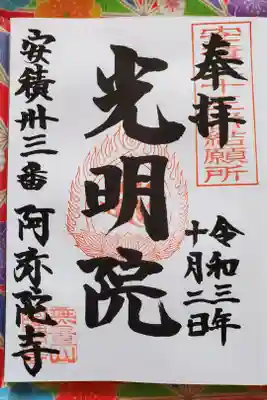 奉拝
令和三年
十月二日
光明院
安積卅三番 阿弥陀寺